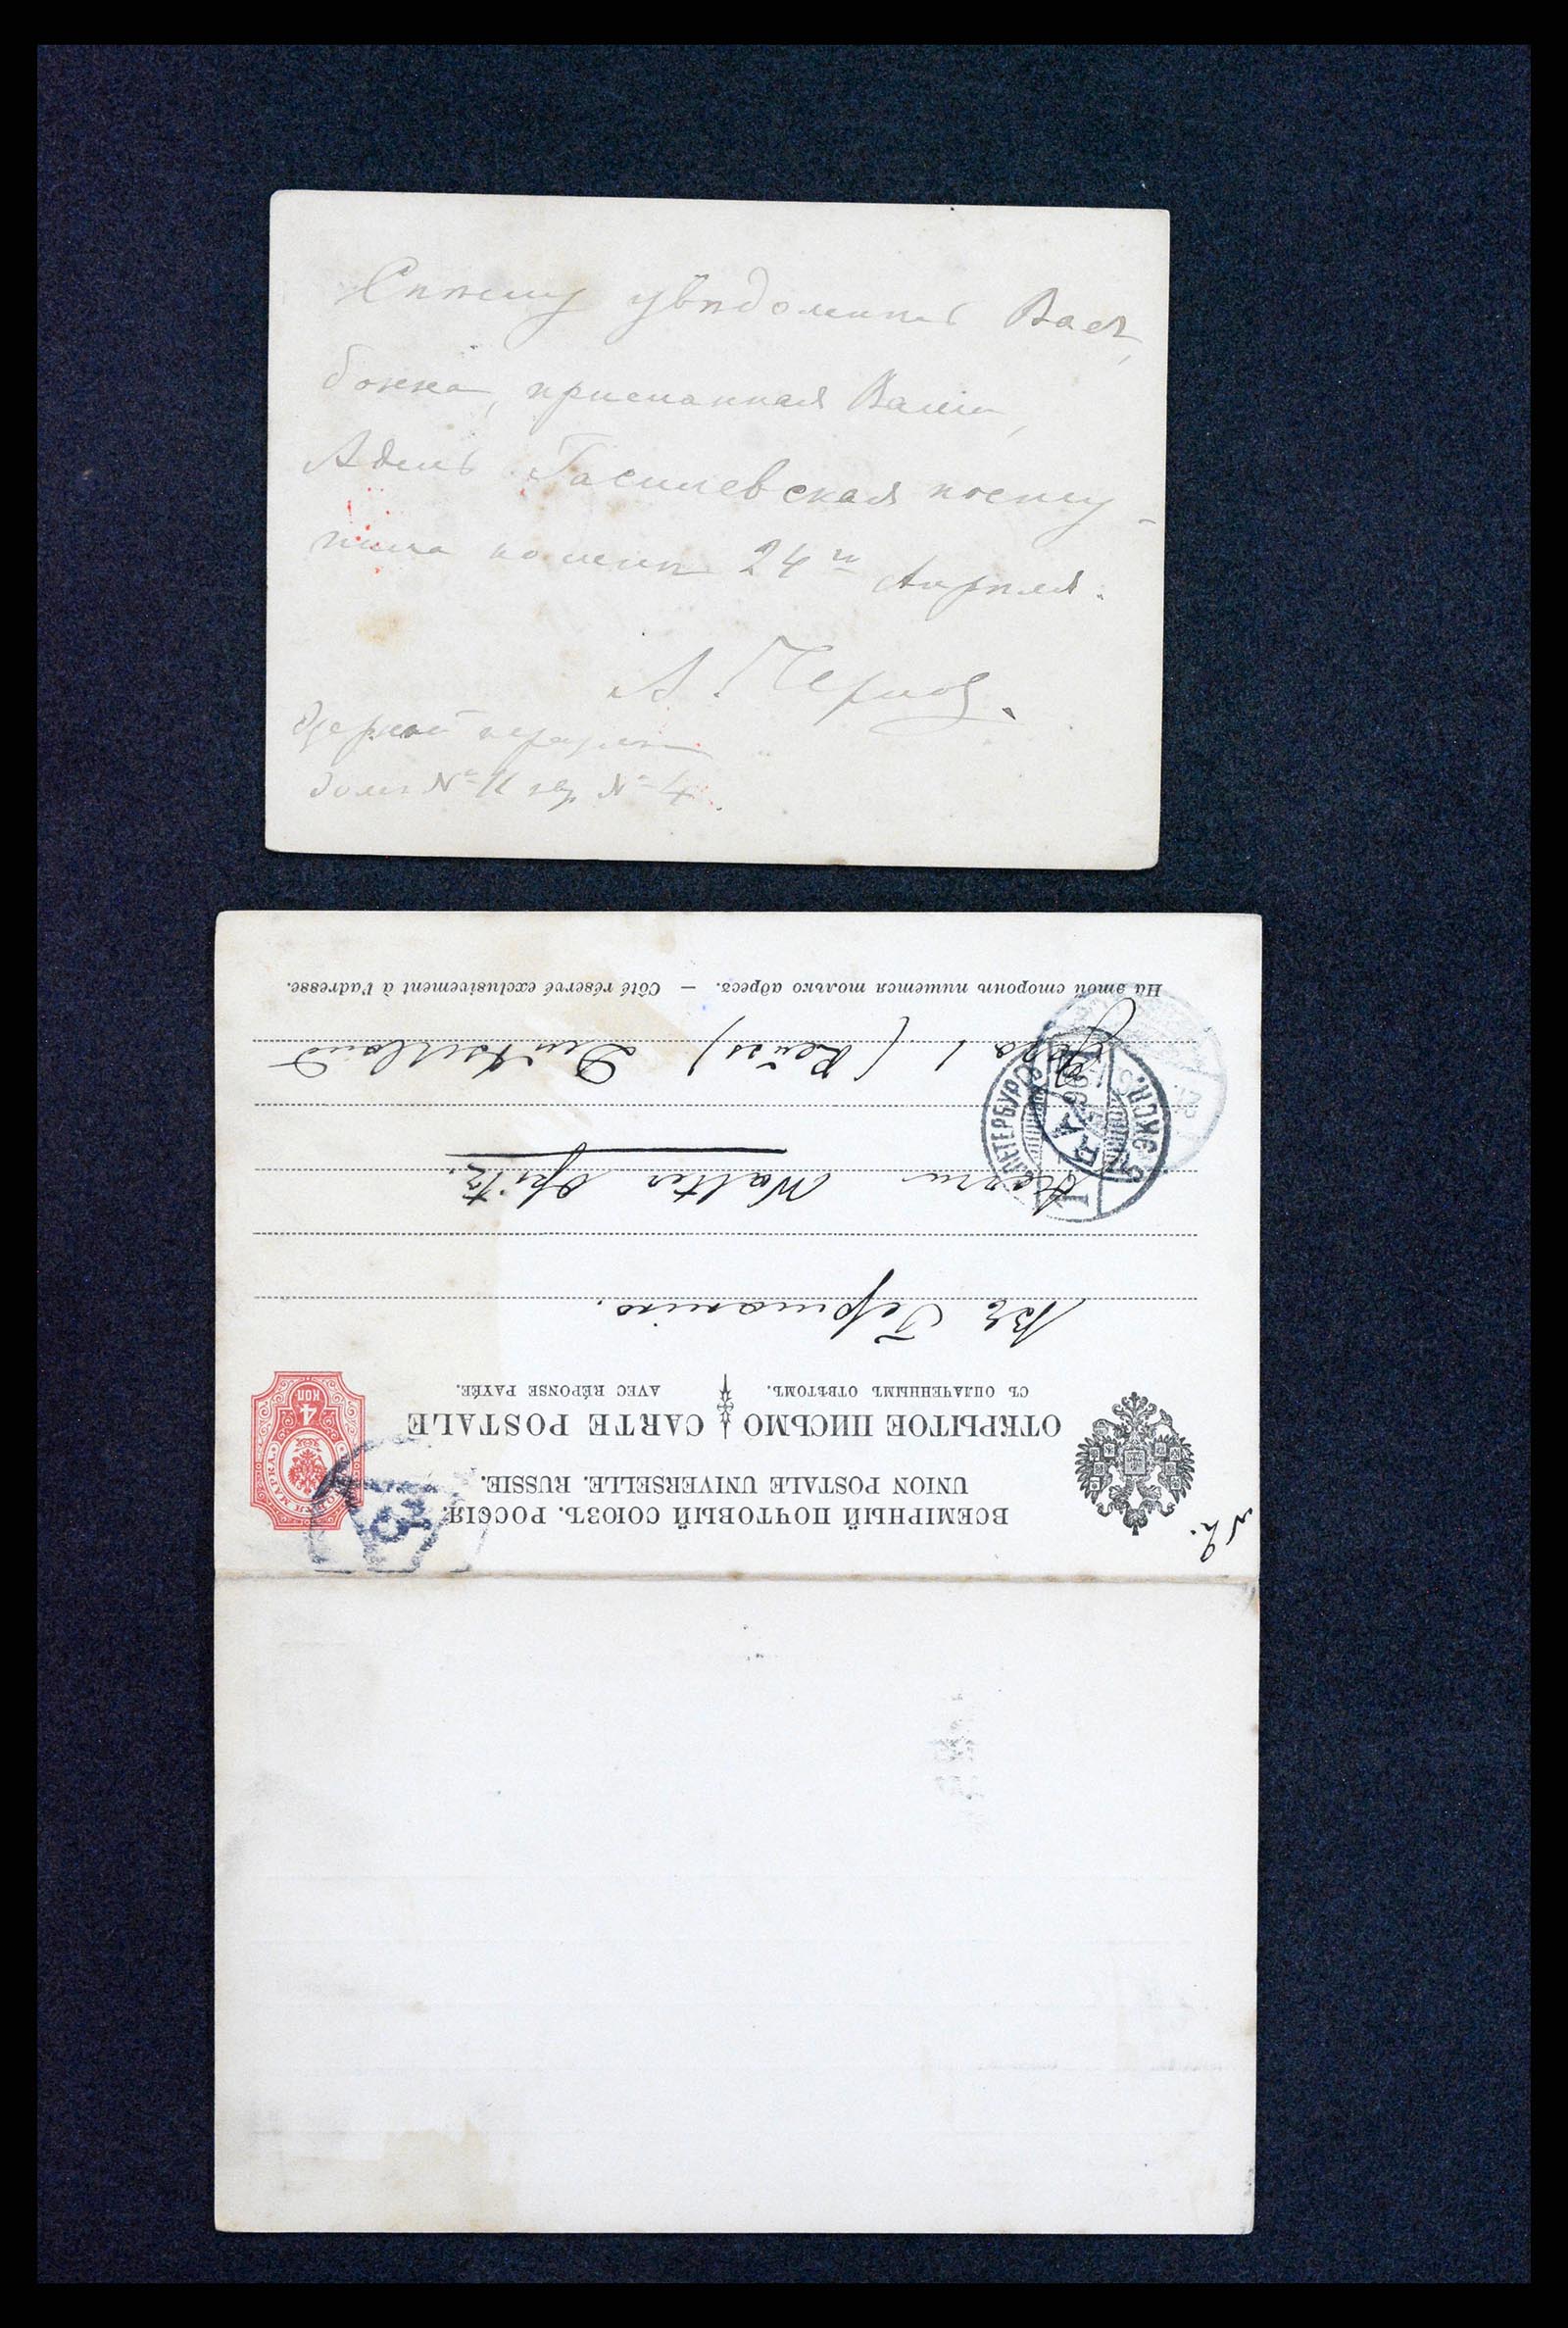 Спѣшу увѣдомить Васъ,
бонна, присланная Вами,
Адель Гасилевская посту-
пила ко мнѣ 24го Апрѣля.
А. Чернов.
Озерной переулокъ
домъ № 11 кв. № 4.
№ 2.
ВСЕМІРНЫЙ ПОЧТОВЫЙ СОЮЗЪ. РОССІЯ.
UNION POSTALE UNIVERSELLE. RUSSIE.
ОТКРЫТОЕ ПИСЬМО CARTE POSTALE
СЪ ОПЛАЧЕННЫМЪ ОТВѢТОМЪ. AVEC RÉPONSE PAYÉE.
4 КОП
ПОЧТОВАЯ МАРКА
Въ Германію.
Herrn Walter Opitz.
Gera (Reuss) Deutschland
На этой сторонѣ пишется только адресъ. — Côté réservé exclusivement à l'adresse.